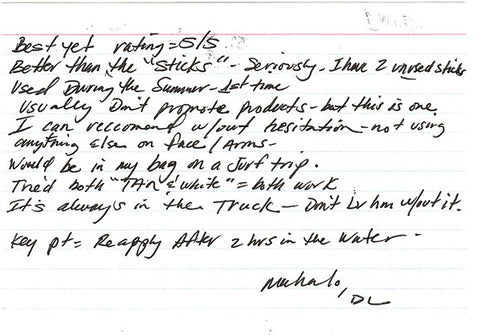 Best yet rating = 5/5
Better than the "sticks" - Seriously - I have 2 unused sticks
Used During the Summer - 1st time
Usually Don't promote products - but this is one
I can reccomend w/out hesitation - not using
anything else on face / Arms -
Would be in my bag on a surf trip.
Tried both "TAN & white" = both work
It's always in the Truck - Don't Lv hm w/out it.
Key pt = Reapply After 2 hrs in the Water -
Mahalo,
DL